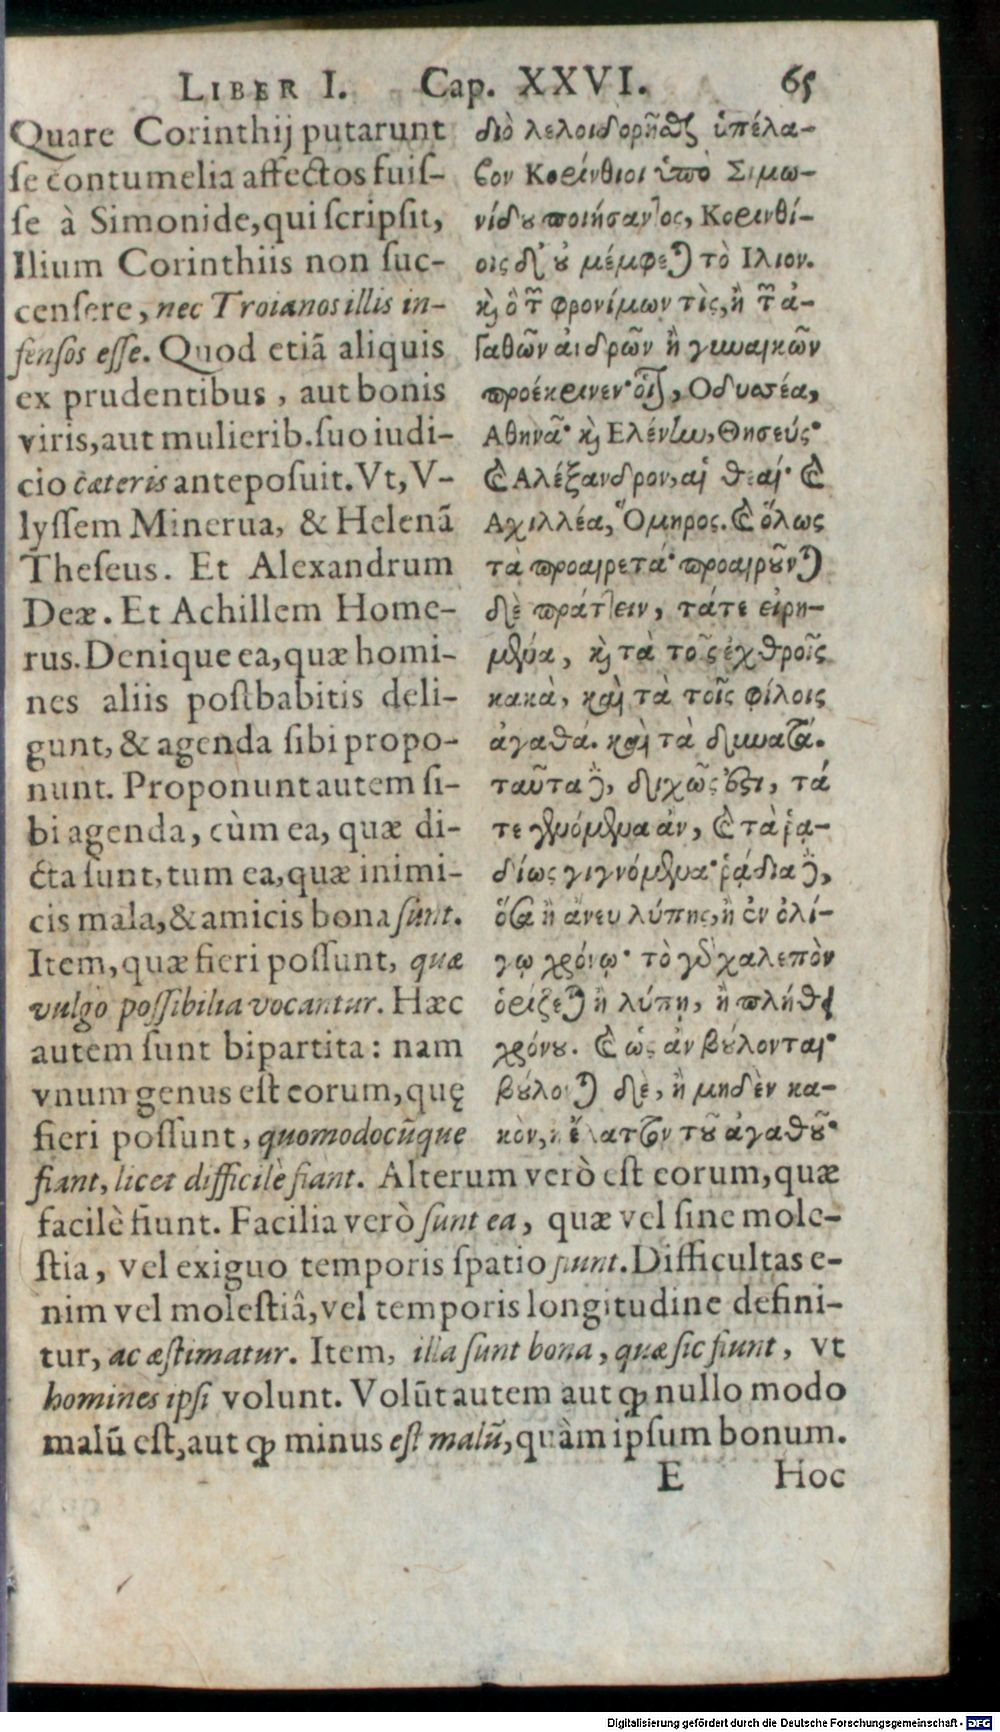 LIBER I. Cap. XXVI. 65
Quare Corinthij putarunt
se contumelia affectos fuis-
se à Simonide, qui scripsit,
Ilium Corinthiis non suc-
censere, nec Troianos illis in-
fensos esse. Quod etiā aliquis
ex prudentibus, aut bonis
viris, aut mulierib. suo iudi-
cio cæteris anteposuit. Vt, V-
lyssem Minerua, & Helenā
Theseus. Et Alexandrum
Deæ. Et Achillem Home-
rus. Denique ea, quæ homi-
nes aliis postbabitis deli-
gunt, & agenda sibi propo-
nunt. Proponunt autem si-
bi agenda, cùm ea, quæ di-
cta sunt, tum ea, quæ inimi-
cis mala, & amicis bona sunt.
Item, quæ fieri possunt, quæ
vulgo possibilia vocantur. Hæc
autem sunt bipartita: nam
vnum genus est eorum, quę
fieri possunt, quomodocūque
διὸ λελοιδορῆσθαι ὑπέλα-
βον Κορίνθιοι ὑπὸ Σιμω-
νίδου ποιήσαντος, Κορινθί-
οις δ' οὐ μέμφεται τὸ Ιλιον.
καὶ ὃ τῶν φρονίμων τὶς, ἢ τῶν ἀ-
γαθῶν ἀνδρῶν ἢ γυναικῶν
προέκρινεν· οἷον, Οδυσσέα,
Αθηνᾶ· καὶ Ελένην, Θησεύς·
καὶ Αλέξανδρον, αἱ θεαί· καὶ
Αχιλλέα, Ὅμηρος. καὶ ὅλως
τὰ προαιρετά· προαιροῦνται
δὲ πράττειν, τάτε εἰρη-
μένα, καὶ τὰ τοῖς ἐχθροῖς
κακὰ, καὶ τὰ τοῖς φίλοις
ἀγαθά. καὶ τὰ δυνατά.
ταῦτα δὲ, διχῶς ἐστι, τά
τε γενόμενα ἀν, καὶ τὰ ῥᾳ-
δίως γιγνόμενα· ῥᾴδια δὲ,
ὅσα ἢ ἄνευ λύπης, ἢ ἐν ὀλί-
γῳ χρόνῳ· τὸ γὰρ χαλεπὸν
ὁρίζεται ἢ λύπῃ, ἢ πλήθει
χρόνου. καὶ ὡς ἀν βούλονται·
βούλονται δὲ, ἢ μηδὲν κα-
κὸν, ἢ ἔλαττον τοῦ ἀγαθοῦ·
fiant, licet difficilè fiant. Alterum verò est eorum, quæ
facilè fiunt. Facilia verò sunt ea, quæ vel sine mole-
stia, vel exiguo temporis spatio fiunt. Difficultas e-
nim vel molestiâ, vel temporis longitudine defini-
tur, ac æstimatur. Item, illa sunt bona, quæ sic fiunt, vt
homines ipsi volunt. Volūt autem aut ꝙ nullo modo
malū est, aut ꝙ minus est malū, quàm ipsum bonum.
E Hoc
Digitalisierung gefördert durch die Deutsche Forschungsgemeinschaft - DFG